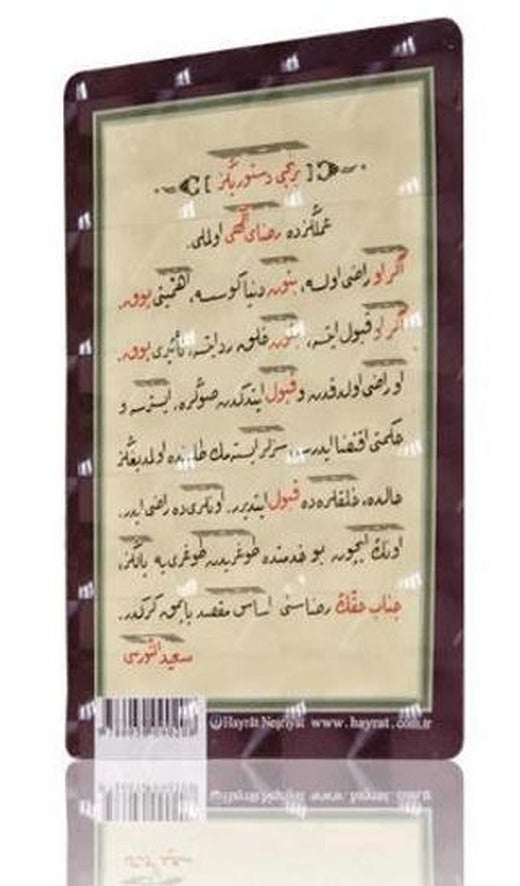 [ برنجی دستوریڭز ]
عملڭزده رضای الٰهی اولملی.
اگر او راضی اولسه، بتون دنیا كوسسه، اهمیتی یوق.
اگر او قبول ایتسه، بتون خلق رد ایتسه، تأثیری یوق.
او راضی اولدقدن و قبول ایتدكدن صوڭره، ایسترسه و
حكمتی اقتضا ایدرسه، سزلر ایسته‌مك طلبنده اولمدیغڭز
حالده، خلقلره ده قبول ایتدیرر. اونلری ده راضی ایدر.
اونڭ ایچون، بو خدمتده طوغریدن طوغری‌یه یالڭز،
جناب حقڭ رضاسنی اساس مقصد یاپمق گركدر.
سعید النورسی
Hayrât Neşriyat www.hayrat.com.tr